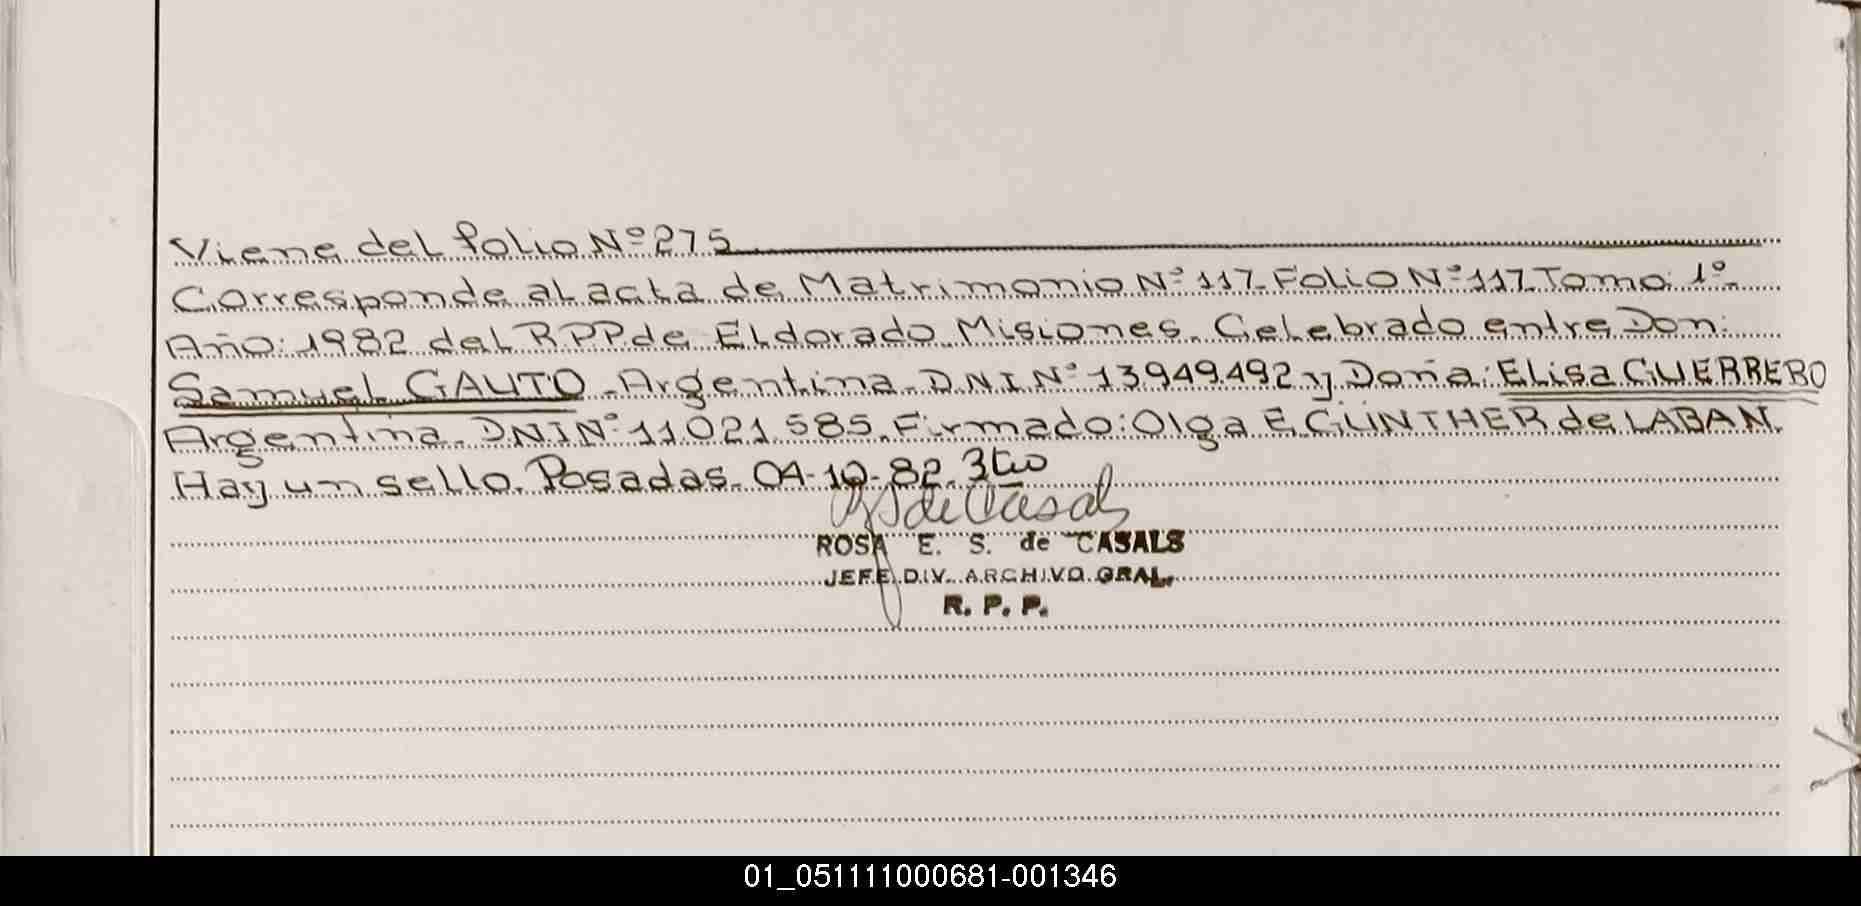 Viene del folio Nº 275
Corresponde al acta de Matrimonio Nº 117. Folio Nº 117. Tomo: 1º.
Año: 1982 del R.P.P. de Eldorado. Misiones. Celebrado entre Don:
Samuel GAUTO. Argentina. D.N.I Nº 13949.492 y Doña: Elisa GUERRERO
Argentina. DNI Nº 11 021 585. Firmado: Olga E. GÜNTHER de LABAN.
Hay un sello. Posadas. 04-10-82.
de Casals
ROSA E. S. de CASALS
JEFE DIV. ARCHIVO GRAL.
R. P. P.
01_051111000681-001346